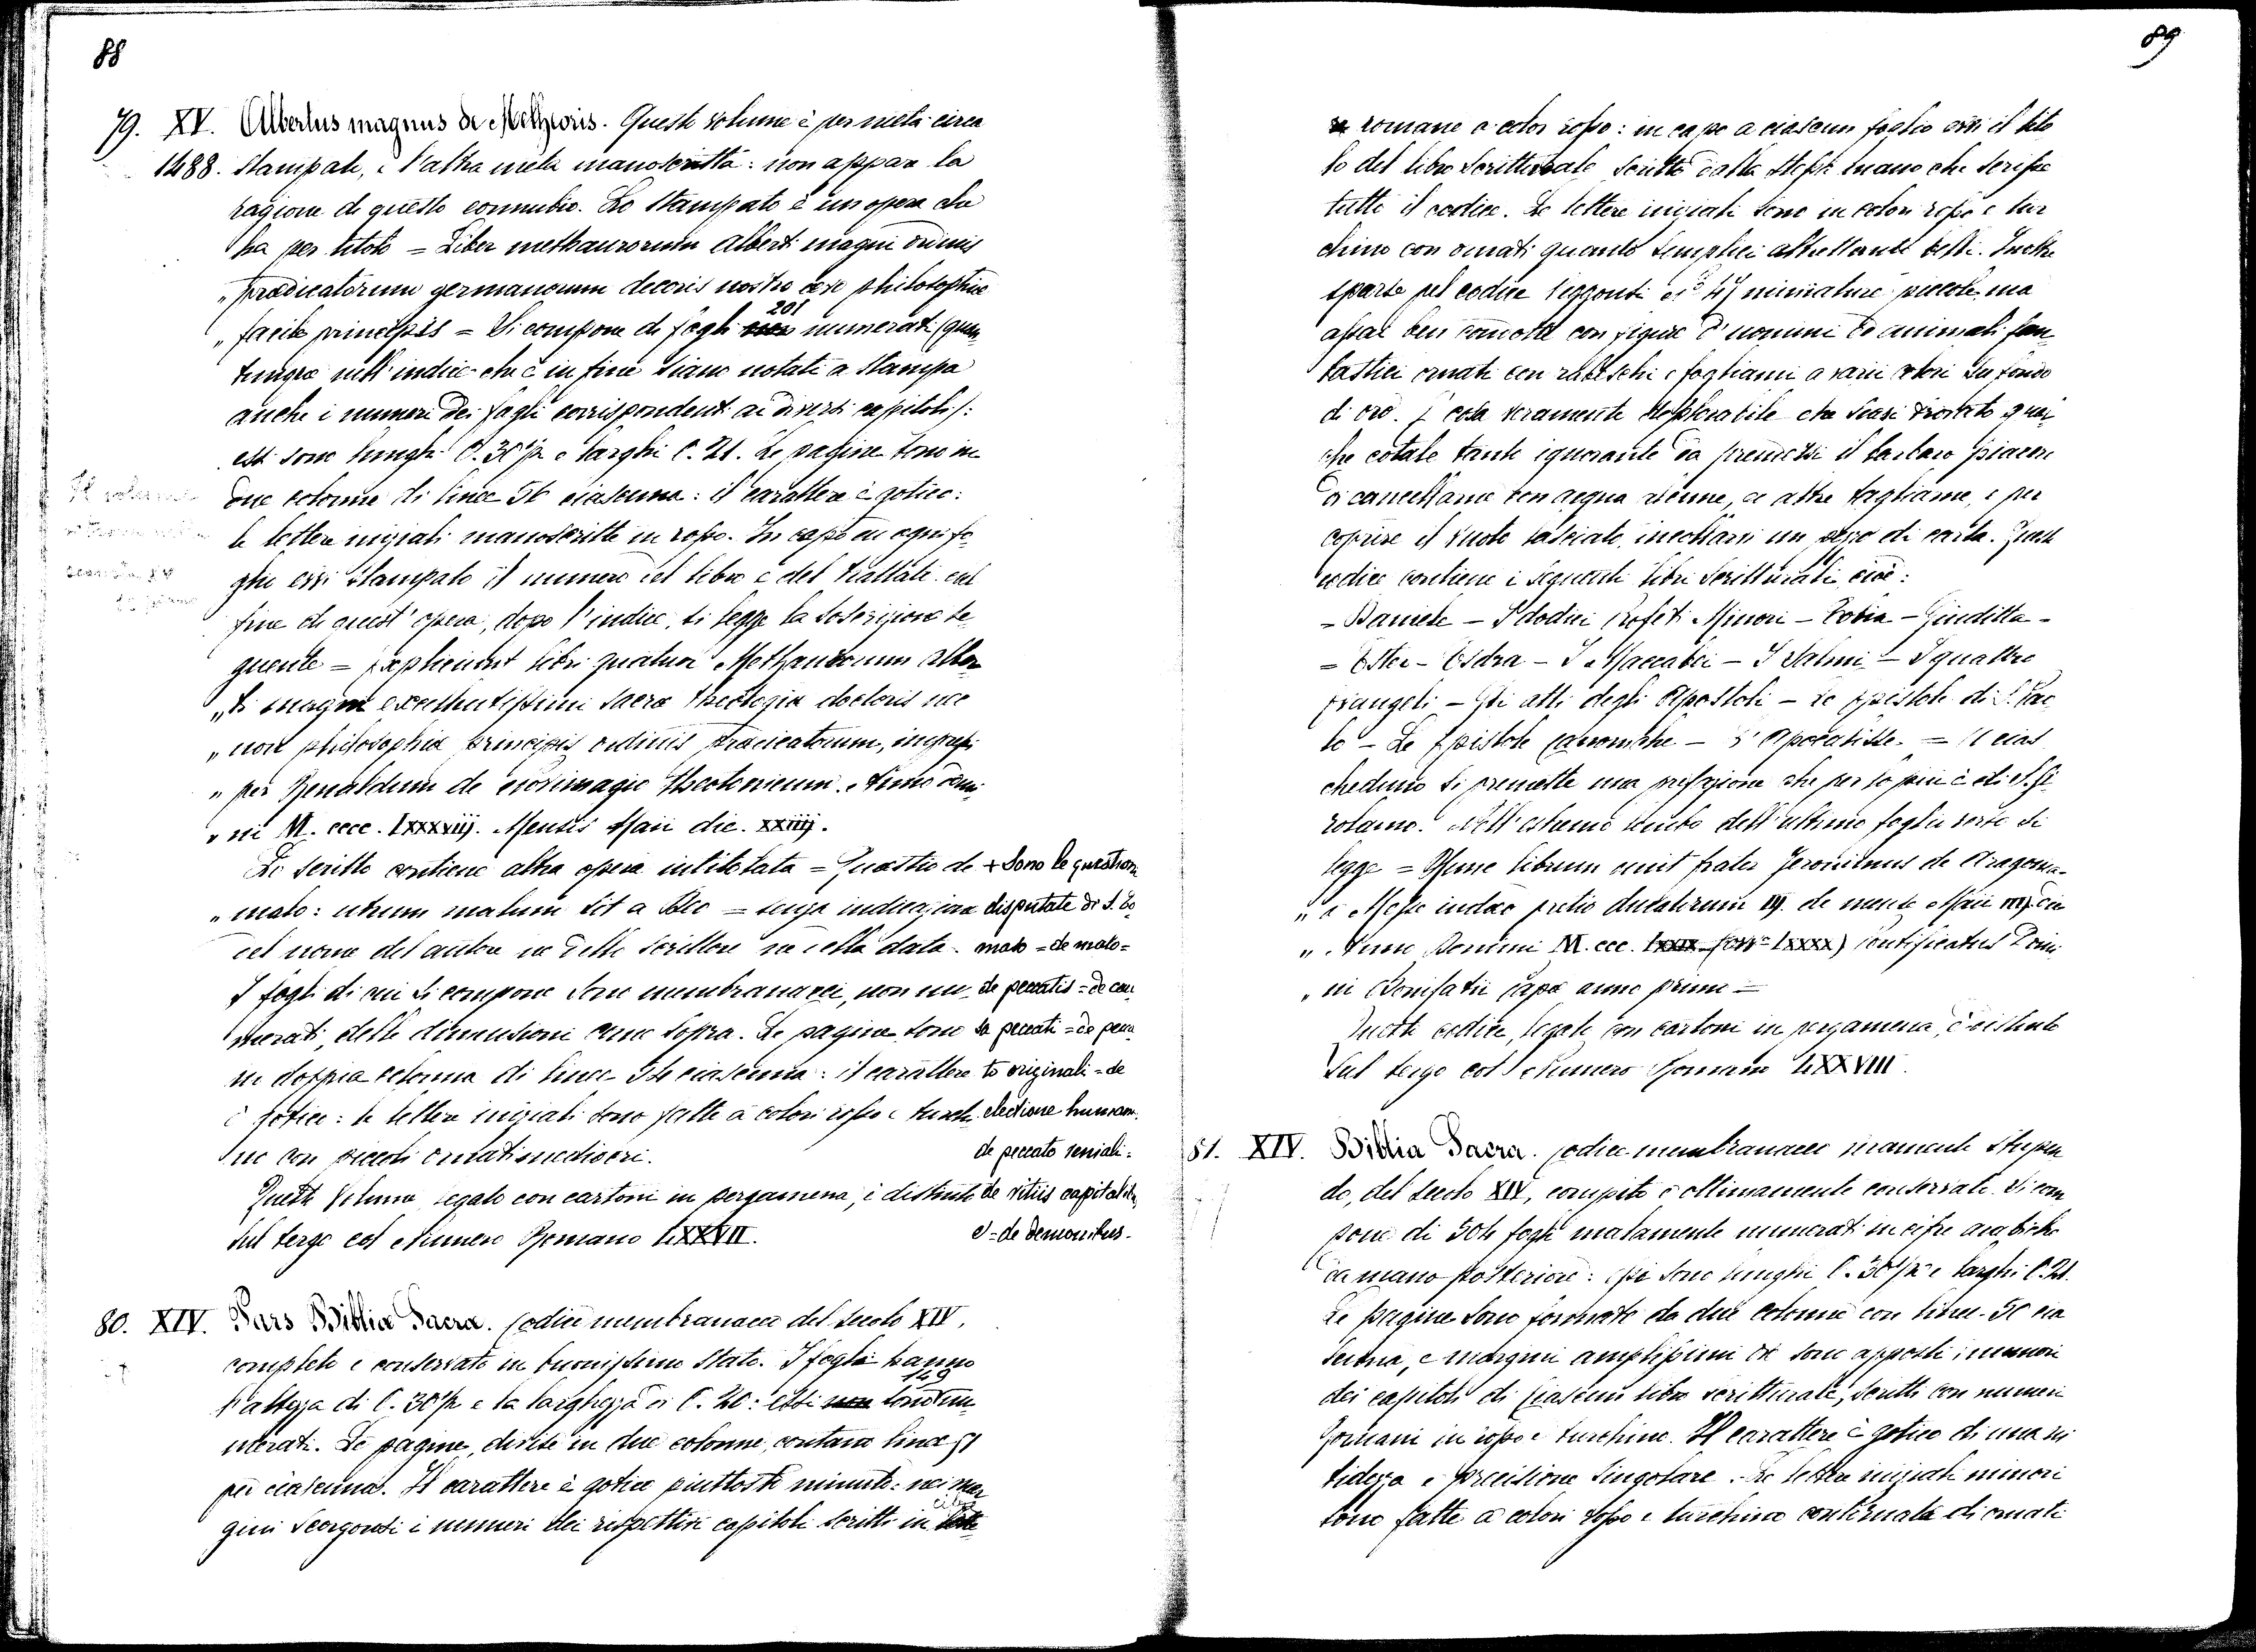 88
79. XV. Albertus magnus de Metheoris. Questo volume è per metà circa
1488. stampato, e l'altra metà manoscritta: non appare la
ragione di questo connubio. Lo stampato è un opera che
ha per titolo = Liber methaurorum Alberti magni ordinis
„ prædicatorum germanorum decoris nostro ævo philosophiæ
„ facile principis = Si compone di fogli 201 numerati (quan
tunque nell' indice che è in fine siano notati a stampa
anche i numeri dei fogli corrispondenti ai diversi capitoli):
essi sono lunghi C. 30½ e larghi C. 21. Le pagine sono in
due colonne di linee 56 ciascuna: il carattere è gotico:
le lettere iniziali manoscritte in rosso. In capo ad ogni fo
glio èvvi stampato il numero del libro e del trattato. Nel
fine di quest' opera, dopo l'indice, si legge la soscrizione se
guente = Expliciunt libri quatuor Methaurorum Alber
„ti magni excellentissimi sacræ theologiæ doctoris nec
„ non philosophiæ principis ordinis prædicatorum, impressi
„ per Renaldum de novimagio theotonicum. Anno domi
„ ni M. cccc. lxxxviij. Mensis Maii die. xxiiij.
Lo scritto contiene altra opera intitolata = Quæstio de
„ malo: utrum malum sit a Deo = senza indicazione
del nome del autore ne dello scrittore ne della data.
I fogli di cui si compone sono membranacei, non nu
merati, delle dimensioni come sopra. Le pagine sono
in doppia colonna di linee 54 ciascuna: il carattere
è gotico: le lettere iniziali sono fatte a colori rosso e turchi
no con piccoli ornati mediocri.
+ Sono le questioni
disputate di S. To
maso = de malo =
de peccatis = de cau
sa peccati = de pecca
to originali = de
electione humana.
de peccato veniali =
de vitiis capitalibus
e = de demonibus.
Questo volume legato con cartoni in pergamena, è distinto
sul tergo col Numero Romano LXXVII.
80. XIV. Pars Bibliæ Sacræ. Codice membranaceo del secolo XIV,
completo e conservato in buonissimo stato. I fogli hanno
l'altezza di C. 30½ e la larghezza di C. 20: essi non sono 149 nu
merati. Le pagine, divise in due colonne, contano linee 51
per ciascuna. Il carattere è gotico piuttosto minuto: nei mar
gini scorgonsi i numeri dei rispettivi capitoli scritti in cifre
89
romane a color rosso: in capo a ciascun foglio èvvi il tito
lo del libro scritturale scritto dalla stessa mano che scrisse
tutto il codice. Le lettere iniziali sono in colori rosso e tur
chino con ornati quanto semplici altrettanto belli. Inoltre
sparse pel codice veggonsi 47 miniature piccole, ma
assai ben condotte con figure d'uomini e animali fan
tastici ornati con rabeschi e fogliami a varii colori su fondo
di oro. È cosa veramente deplorabile che siasi trovato qual
che cotale tanto ignorante da prendersi il barbaro piacere
di cancellarne con acqua alcune, ed altre tagliarne, e per
coprire il vuoto lasciato, incollarvi un pezzo di carta. Questo
codice contiene i seguenti libri scritturali cioè:
= Daniele – I dodici Profeti Minori – Tobia – Giuditta –
= Ester – Esdra – I Maccabei – I Salmi – I quattro
Evangeli – Gli atti degli Apostoli – Le epistole di S. Pao
lo – Le Epistole Canoniche – L'Apocalisse. = A cias
cheduno si premette una prefazione che per lo più è di S. Gi
rolamo. Nell'estremo lembo dell'ultimo foglio verso si
legge = Hunc librum emit frater Jeronimus de Aragonia
„ Anno Domini M. ccc. lxxxix (forse lxxxx) Pontificatus Domi
„ ni Bonifatii Papæ anno primo =
Questo codice, legato con cartoni in pergamena, è distinto
sul tergo col Numero Romano LXXVIII.
81. XIV. Biblia Sacra. Codice membranaceo veramente stupen
do, del secolo XIV, compito e ottimamente conservato. Si com
pone di 504 fogli malamente numerati in cifre arabiche
da mano posteriore: essi sono lunghi C. 30½ e larghi C. 21.
Le pagine sono formate da due colonne con linee 50 cia
scuna, e margini amplissimi ove sono apposti i numeri
dei capitoli di ciascun libro scritturale, scritti con numeri
Romani in rosso e turchino. Il carattere è gotico di una ni
tidezza e precisione singolare. Le lettere iniziali minori
sono fatte a colori rosso e turchino contornate di ornati